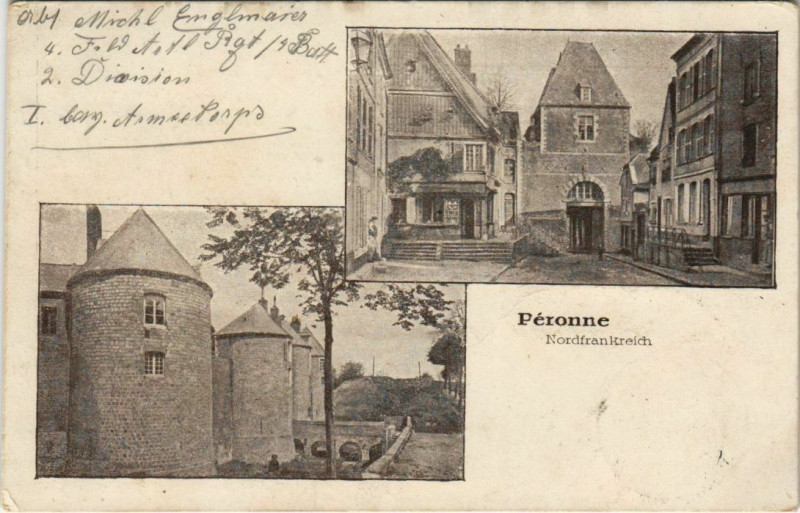 Michl Englmaier
4. Feld Artl Rgt /
2. Division
I. bay. Armeekorps
Péronne
Nordfrankreich